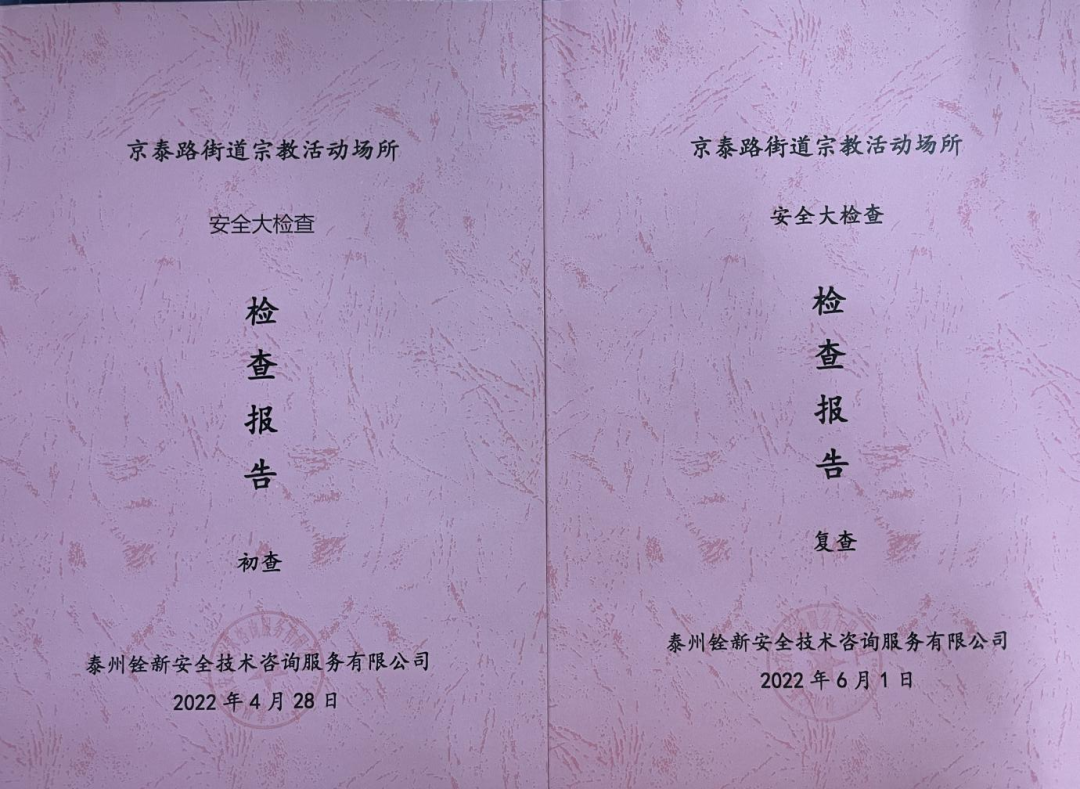 京泰路街道宗教活动场所
安全大检查
检
查
报
告
初查
泰州铨新安全技术咨询服务有限公司
2022年4月28日
京泰路街道宗教活动场所
安全大检查
检
查
报
告
复查
泰州铨新安全技术咨询服务有限公司
2022年6月1日